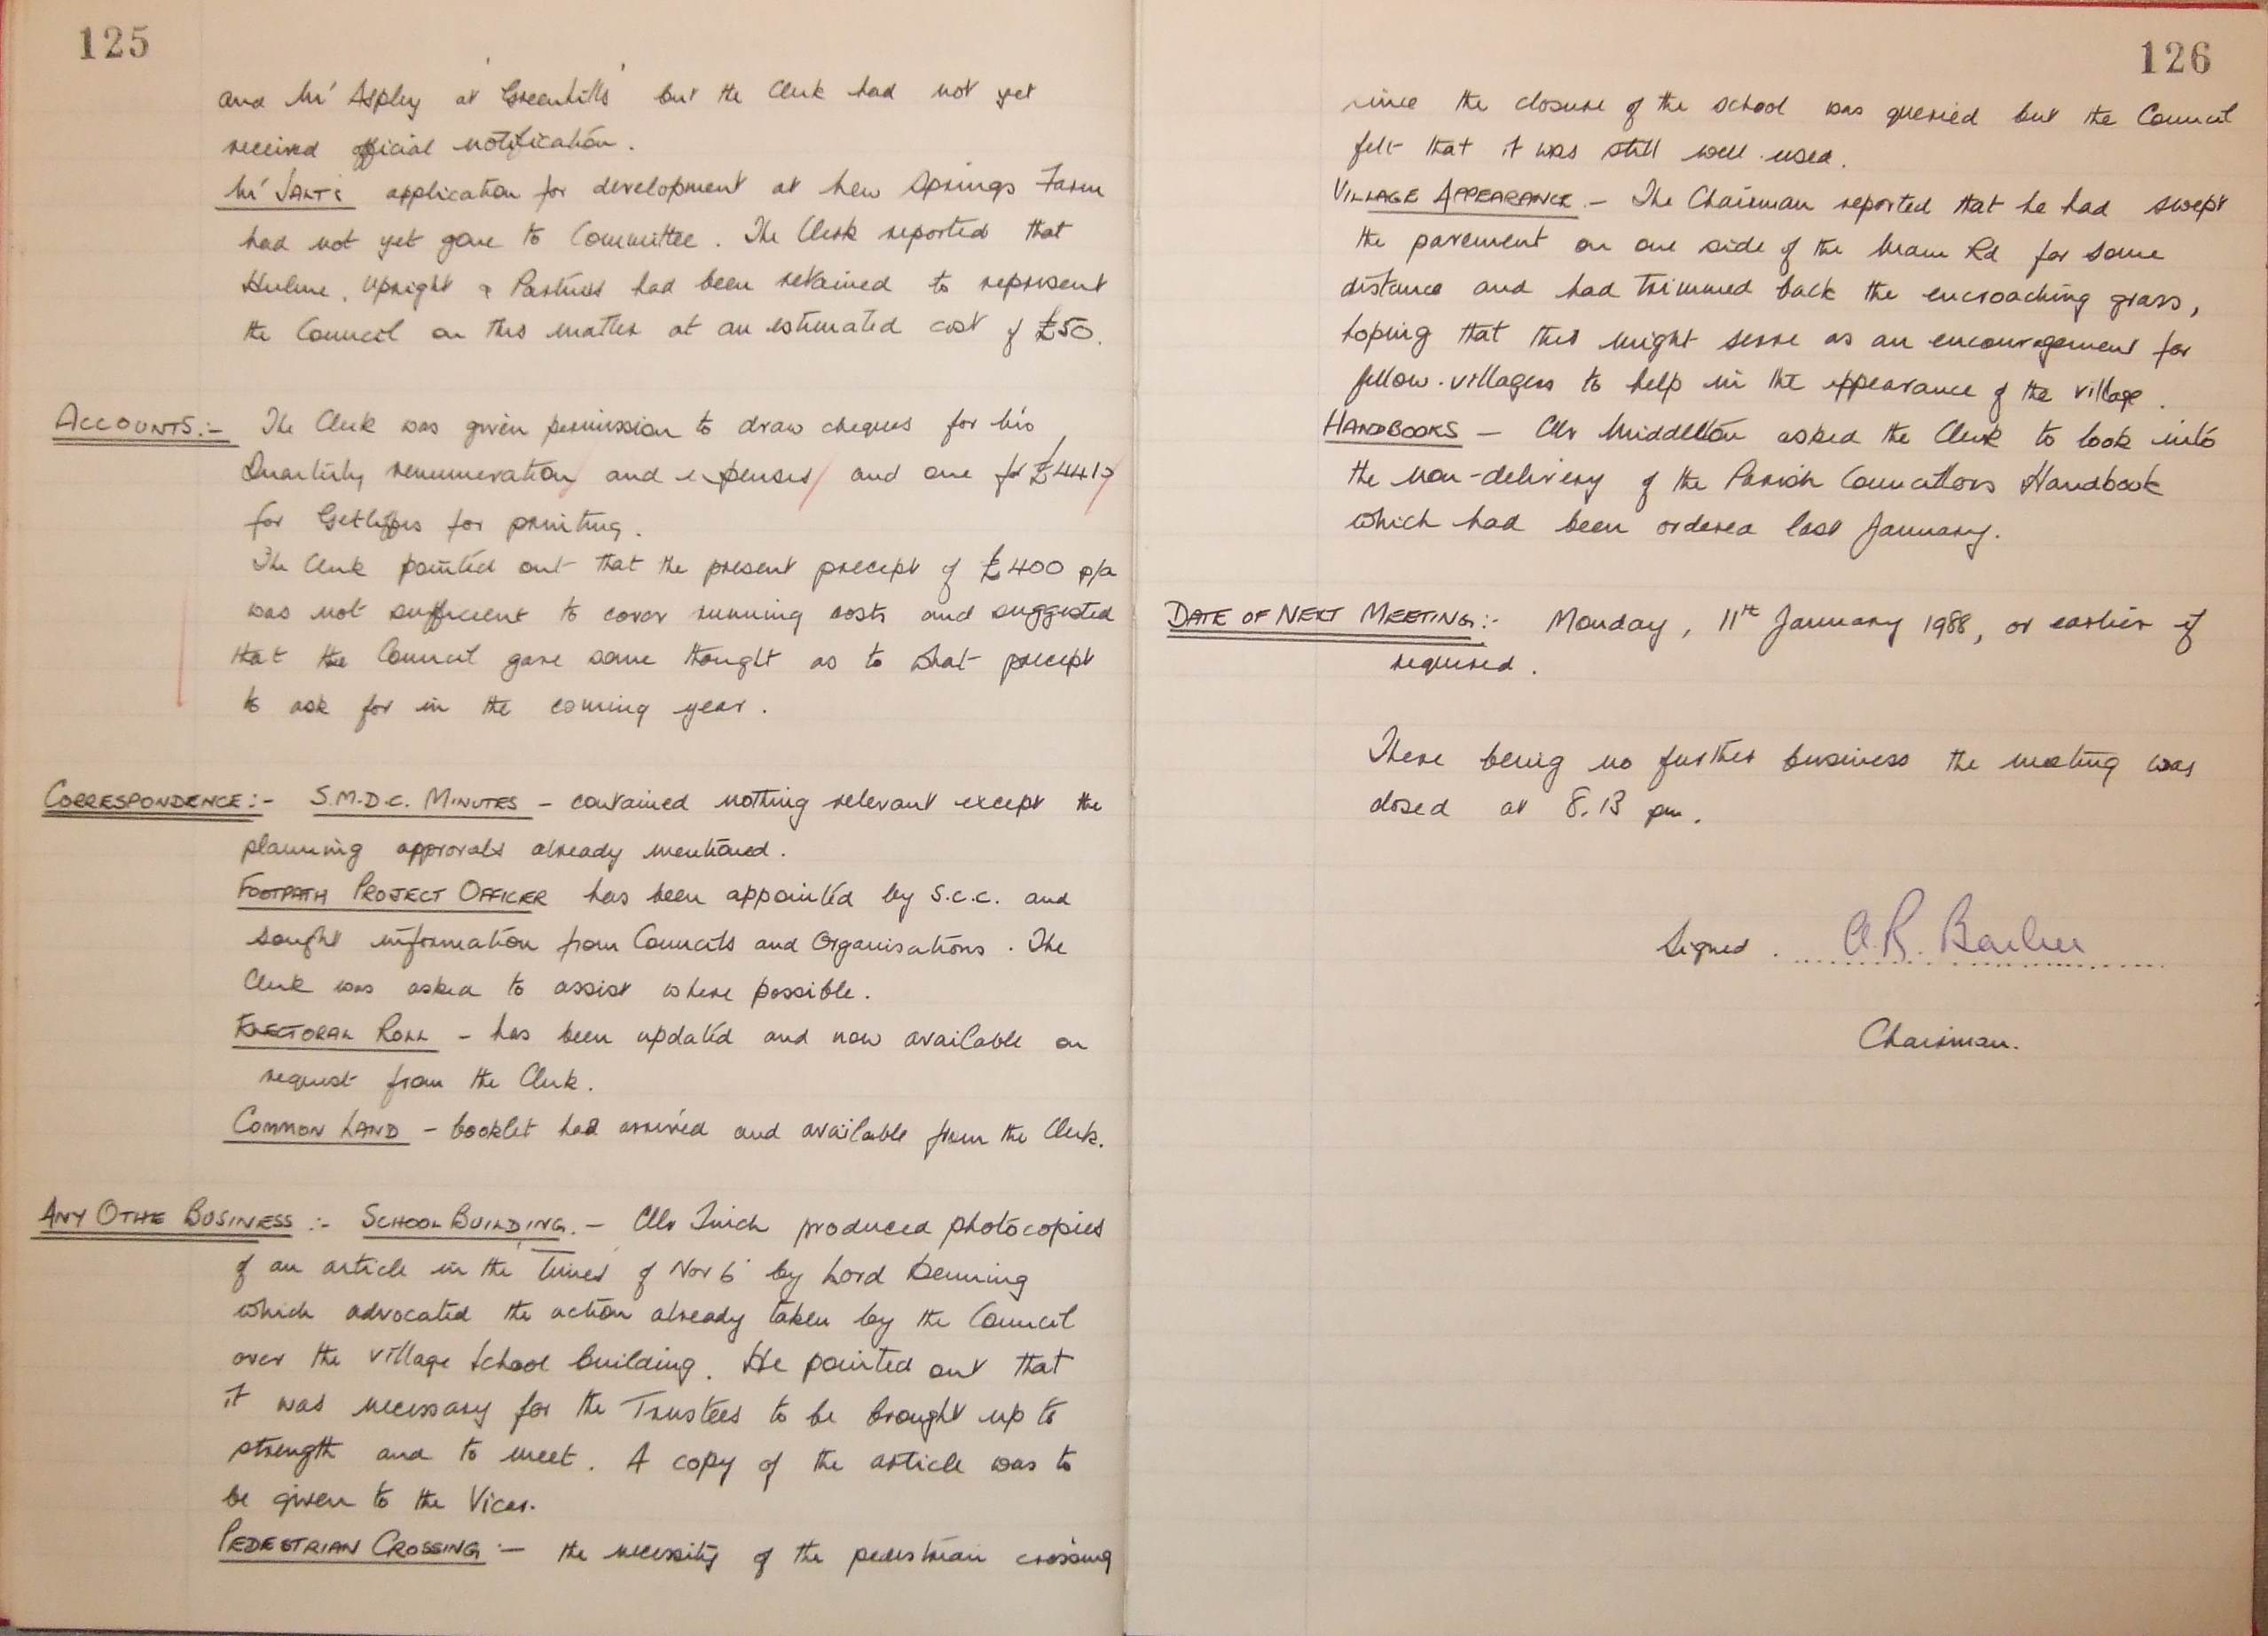 125
and Mr Aspley at 'Greenhills' but the Clerk had not yet
received official notification.
Mr application for development at New Springs Farm
had not yet gone to Committee. The Clerk reported that
Hulme, Upright & Partners had been retained to represent
the Council on this matter at an estimated cost of £50.
ACCOUNTS:- The Clerk was given permission to draw cheques for his
Quarterly renumeration and expenses and one for
for for printing.
The Clerk pointed out that the present precept of £400 p/a
was not sufficient to cover running costs and suggested
that the Council gave some thought as to what precept
to ask for in the coming year.
CORRESPONDENCE:- S.M.D.C. MINUTES - contained nothing relevant except the
planning approvals already mentioned.
FOOTPATH PROJECT OFFICER has been appointed by S.C.C. and
sought information from Councils and Organisations. The
Clerk was asked to assist where possible.
ELECTORAL ROLL - has been updated and now available on
request from the Clerk.
COMMON LAND - booklet had arrived and available from the Clerk.
ANY OTHE BUSINESS :- SCHOOL BUILDING. - Cllr produced photocopies
of an article in the 'Times' of Nov 6 by Lord Denning
which advocated the action already taken by the Council
over the village School building. He pointed out that
it was necessary for the Trustees to be brought up to
strength and to meet. A copy of the article was to
be given to the Vicar.
PEDESTRIAN CROSSING :- the necessity of the pedestrian crossing
126
since the closure of the school was queried but the Council
felt that it was still well used.
VILLAGE APPEARANCE. - The Chairman reported that he had swept
the pavement on one side of the Main Rd for some
distance and had trimmed back the encroaching grass,
hoping that this might serve as an encouragement for
fellow-villagers to help in the appearance of the village.
HANDBOOKS - Cllr Middleton asked the Clerk to look into
the non-delivery of the Parish Councillors Handbook
which had been ordered last January.
DATE OF NEXT MEETING:- Monday, 11th January 1988, or earlier if
required.
There being no further business the meeting was
closed at 8.13 pm.
Signed . A.R. Barber
Chairman.